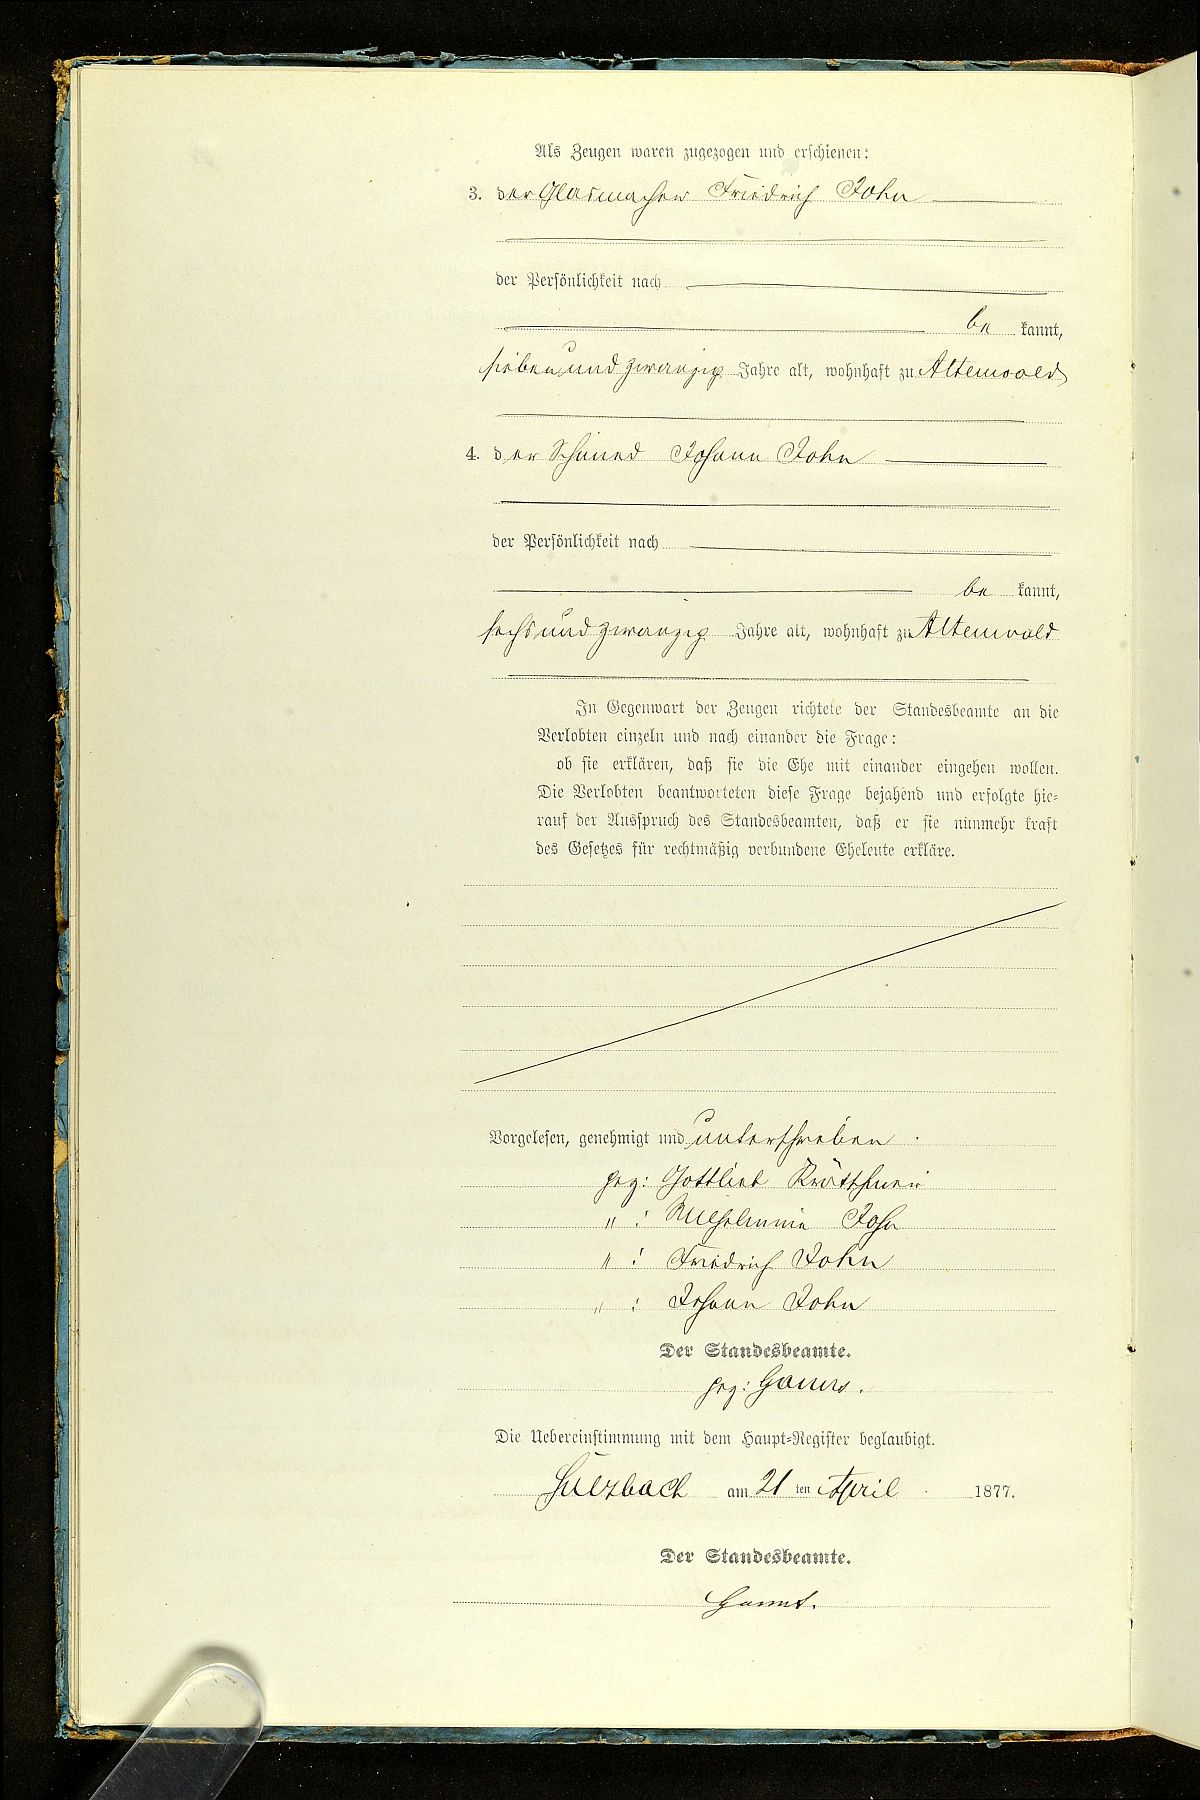 Als Zeugen waren zugezogen und erschienen:
3. der Glasmacher Friedrich John
der Persönlichkeit nach
be kannt,
sieben und zwanzig Jahre alt, wohnhaft zu Altenwald
4. der Schmied Johann John
der Persönlichkeit nach
be kannt,
sechs und zwanzig Jahre alt, wohnhaft zu Altenwald
In Gegenwart der Zeugen richtete der Standesbeamte an die
Verlobten einzeln und nach einander die Frage:
ob sie erklären, daß sie die Ehe mit einander eingehen wollen.
Die Verlobten beantworteten diese Frage bejahend und erfolgte hie-
rauf der Ausspruch des Standesbeamten, daß er sie nunmehr kraft
des Gesetzes für rechtmäßig verbundene Eheleute erkläre.
Vorgelesen, genehmigt und unterschrieben
gez: Gottlieb
" : Wilhelmine John
" : Friedrich John
" : Johann John
Der Standesbeamte.
gez:
Die Uebereinstimmung mit dem Haupt-Register beglaubigt.
Sulzbach am 21 ten April 1877.
Der Standesbeamte.